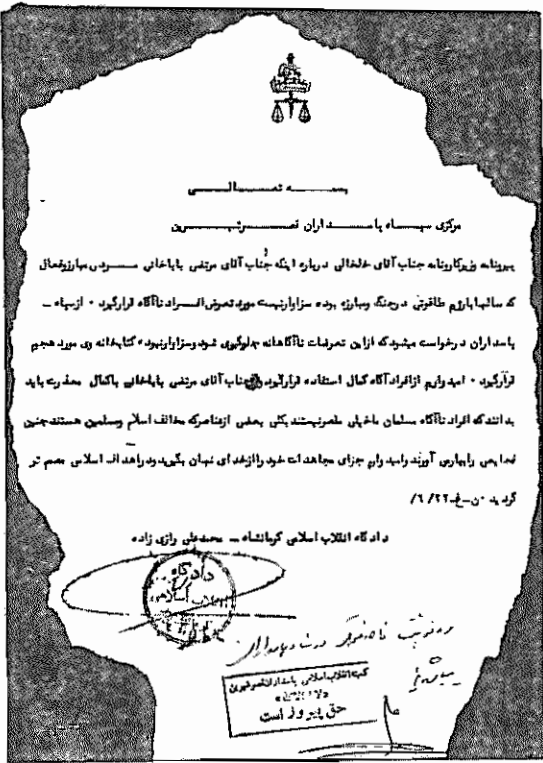 بسمه تعالی
مرکزی سپاه پاسداران قصرشیرین
پیرونامه وزیرکارونامه جناب آقای خلخالی درباره اینکه جناب آقای مرتضی باباخانی مردی مبارزوفعال
که سالهابارژیم طاقوتی درجنگ ومبارزه بوده سزاوارنیست مورد تعرض افراد ناآگاه قرارگیرد ۰ ازسپاه –
پاسداران درخواست میشودکه ازاین تعرضات ناآگاهانه جلوگیری شودوسزاوارنبوده کتابخانه وی مورد هجم
قرارگیرد ۰ امیدواریم ازافرادآگاه کمال استفاده قرارگیرد جناب آقای مرتضی باباخانی باکمال معذرت باید
بدانندکه افراد ناآگاه مسلمان ماخیلی مقصرنیستند یکی بعضی ازعناصرکه مخالف اسلام ومسلمین هستندچنین
فجایعی رابباری آورند وامیدواریم جزای مجاهدات خود راازخدای بگیرید ودراهداف اسلامی مصمم تر
گردید ۰ن–غ–۶/۲۲/
دادگاه انقلاب اسلامی کرمانشاه – محمدعلی رازی زاده
دادگاه
انقلاب اسلامی
کمیته انقلاب اسلامی پاسداران قصرشیرین
حق پیروز است